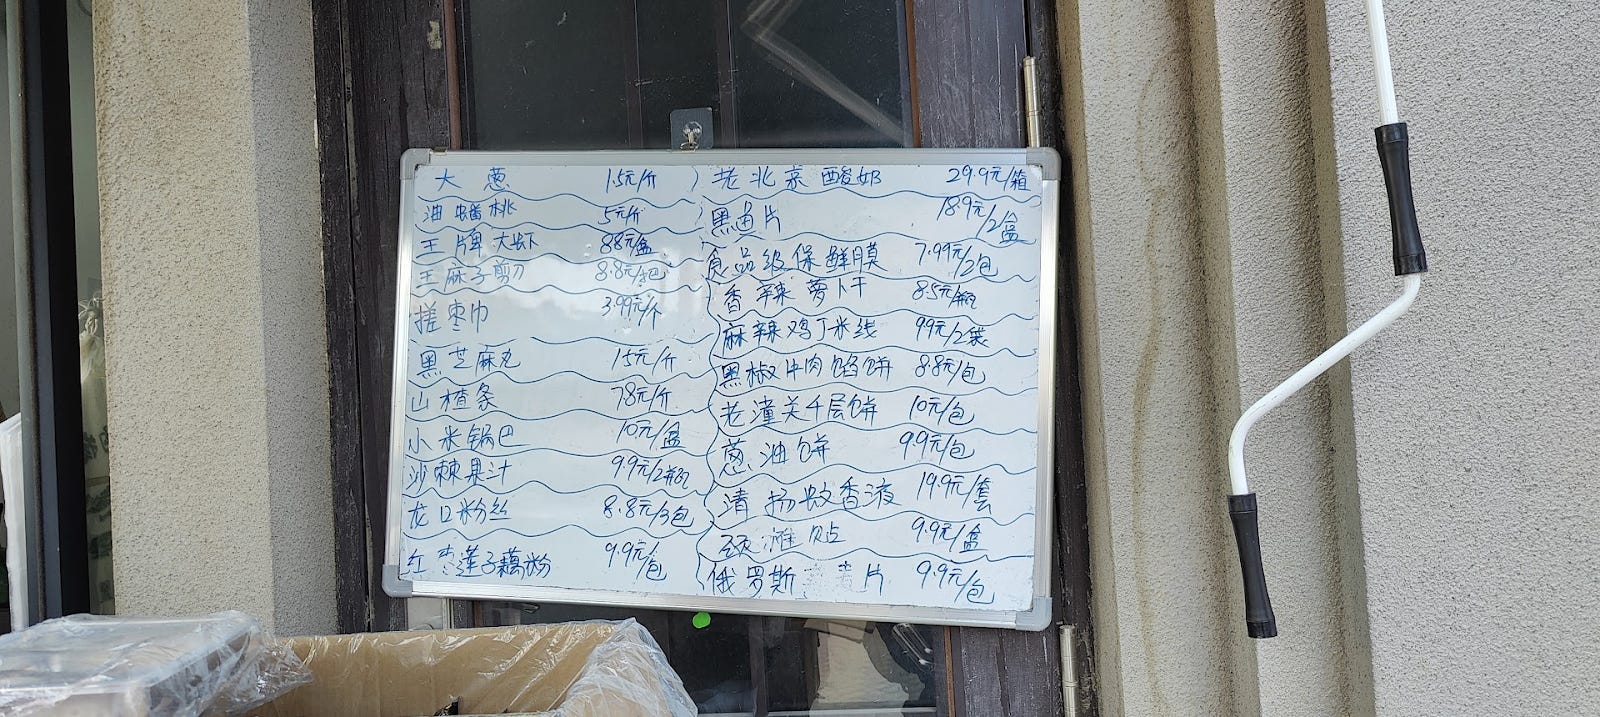 大葱 1.5元/斤
油蟠桃 5元/斤
王牌大虾 88元/盒
王麻子剪刀 8.8元/包
搓枣巾 3.99元/个
黑芝麻丸 15元/斤
山楂条 7.8元/斤
小米锅巴 10元/盒
沙棘果汁 9.9元/2瓶
龙口粉丝 8.8元/3包
红枣莲子藕粉 9.9元/包
老北京酸奶 29.9元/箱
黑鱼片 18.9元/2盒
食品级保鲜膜 7.99元/2包
香辣萝卜干 8.5元/瓶
麻辣鸡丁米线 9.9元/2袋
黑椒牛肉馅饼 8.8元/包
老潼关千层饼 10元/包
葱油饼 9.9元/包
清扬蚊香液 19.9元/套
颈椎贴 9.9元/盒
俄罗斯 片 9.9元/包